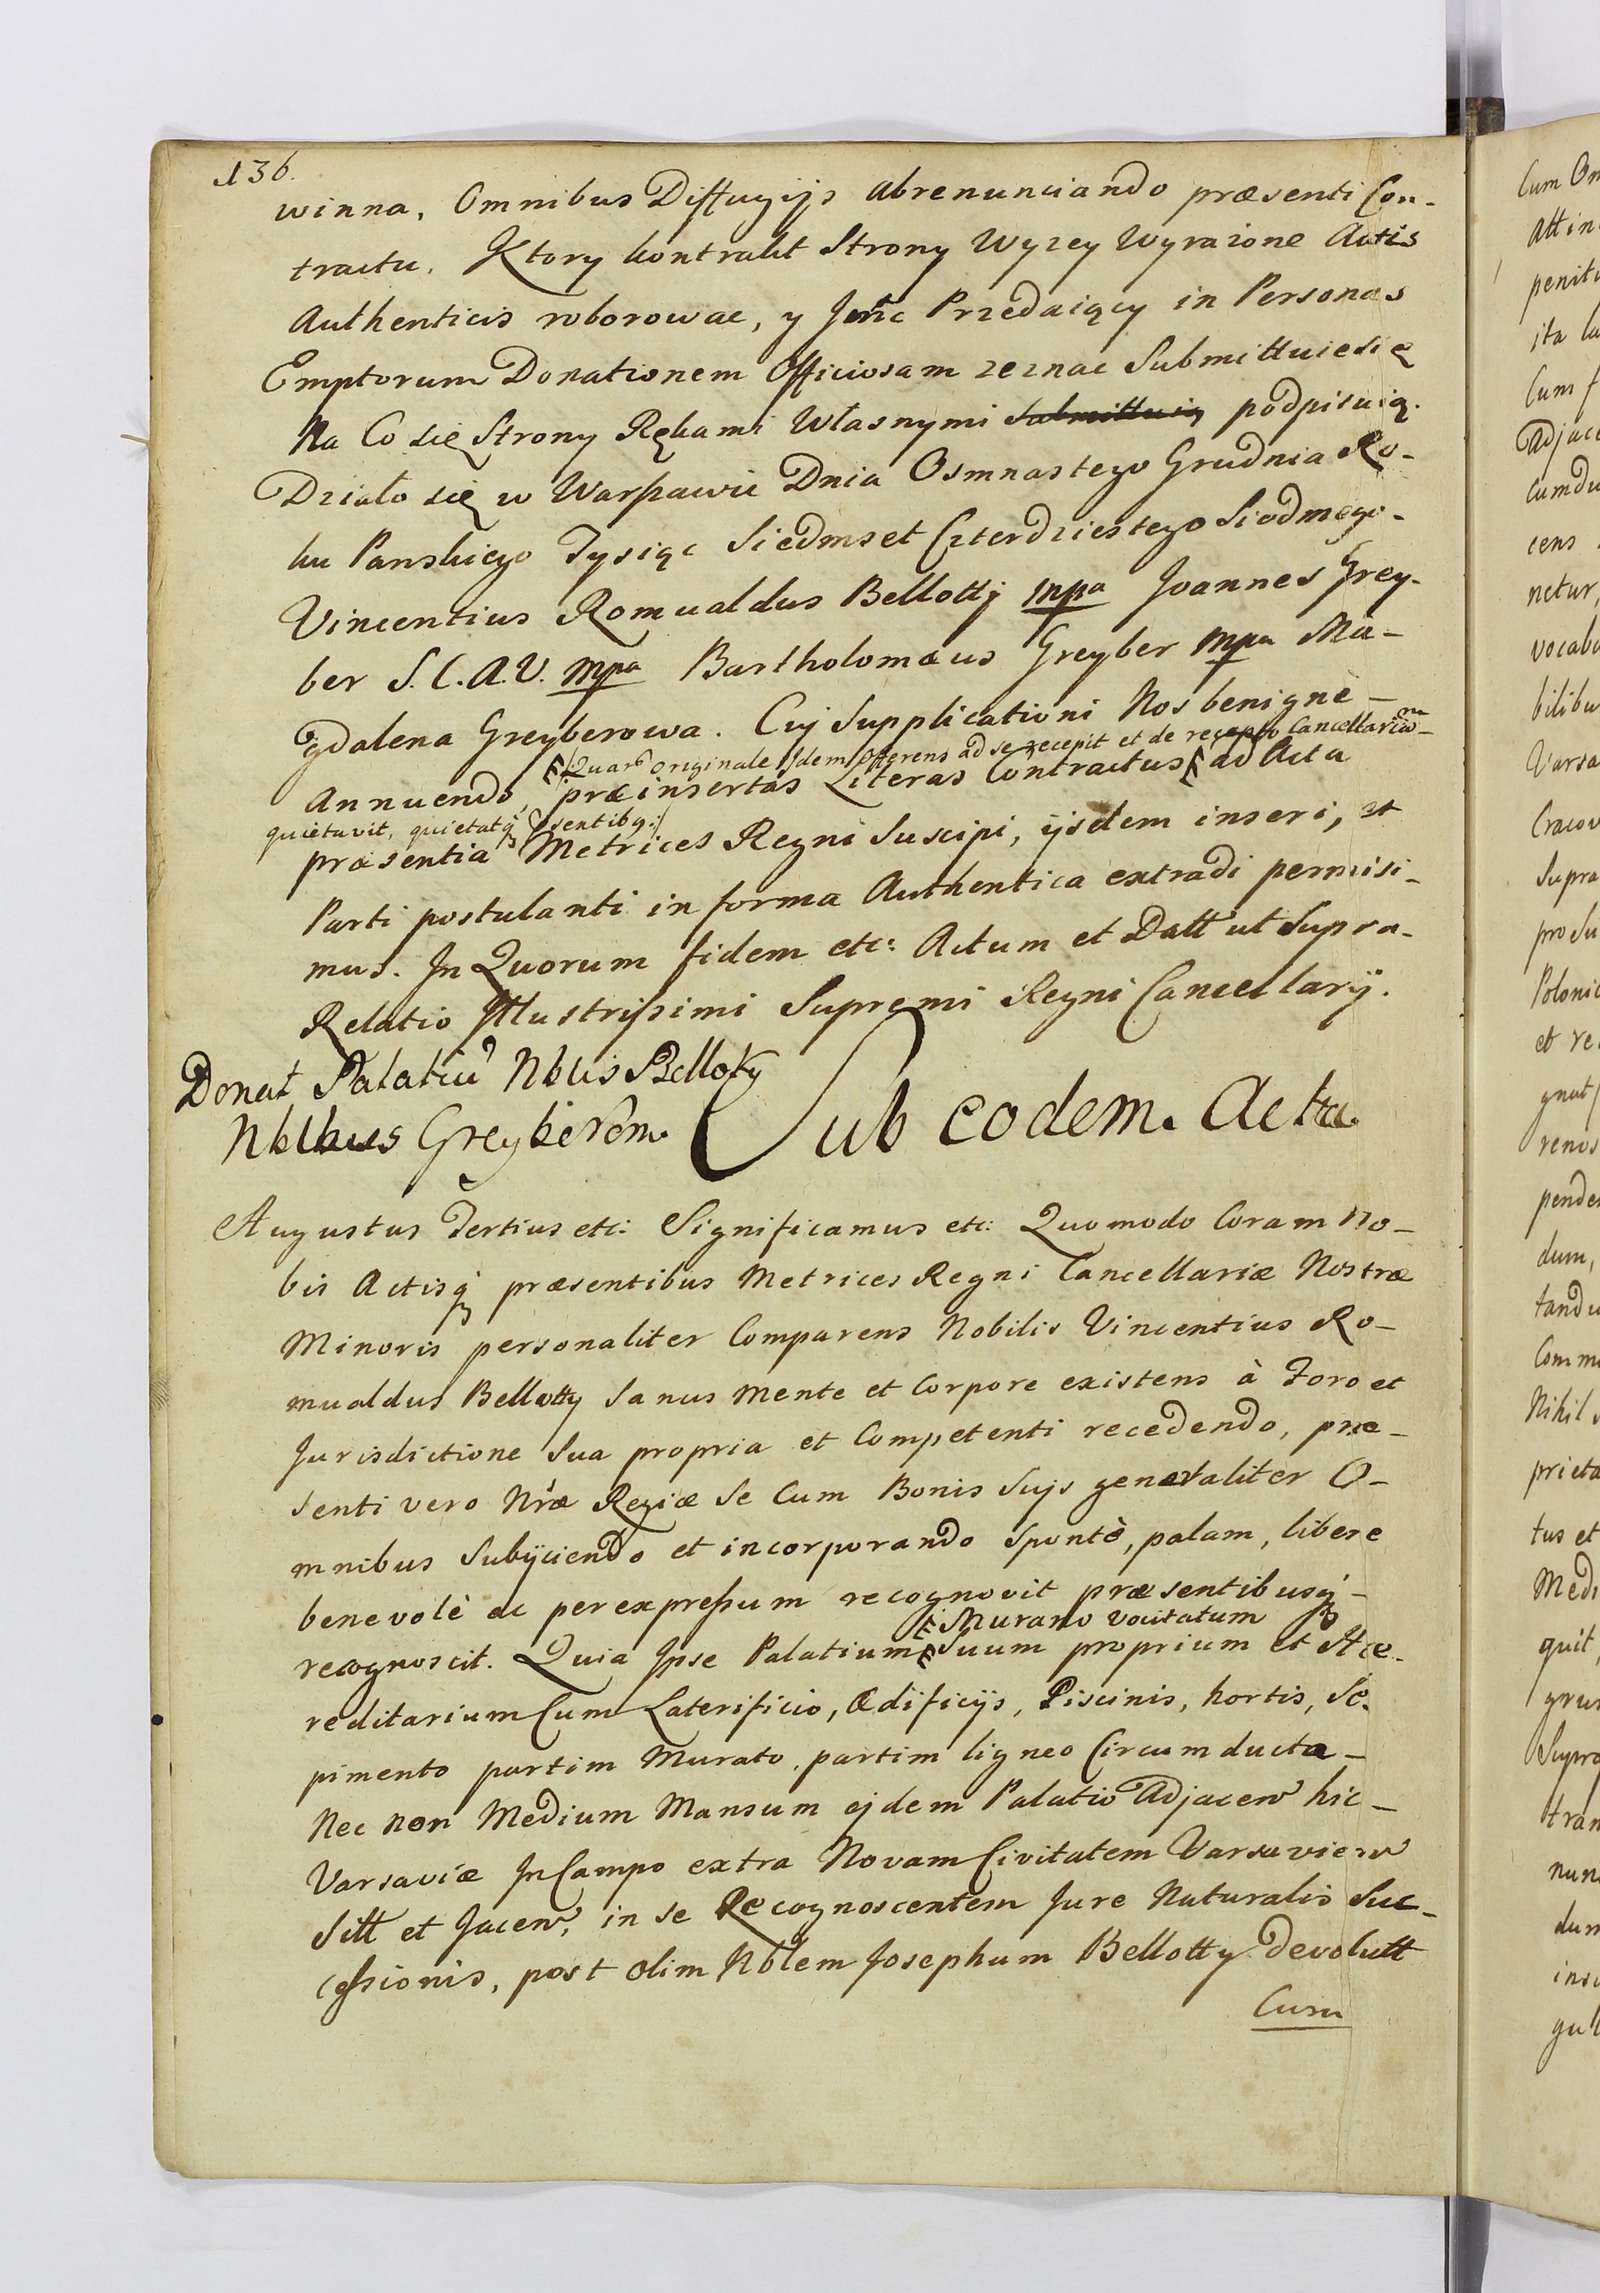 136.
winna, Omnibus Diffugijs abrenunciando præsenti Con-
tractu. Ktory kontrakt Strony Wyzey Wyrazione Actis
Authenticis roborowac, y Jmc Przedaiący in Personas
Emptorum Donationem Officiosam zeznac Submittuiesię
Na Co się Strony Rękami Własnymi submittuią podpisuią.
Działo się w Warszawie Dnia Osmnastego Grudnia Ro-
ku Panskiego Tysiąc Siedmset Czterdziestego Siodmego.
Vincentius Romualdus Bellotty mpa Joannes Grey-
ber S.C.A.V. mpa Bartholomæus Greyber mpa Ma-
gdalena Greyberowa. Cuj Supplicationi Nos benignè
(Quar originale Idem Offerens ad se recepit et de recepto Cancellariam
Annuendo, præinsertas Literas Contractus ad Acta
quietavit, quietatq psentibq:)
præsentia Metrices Regni Suscipi, ijsdem inseri, et
Parti postulanti in forma Authentica extradi permisi-
mus. In Quorum fidem etc: Actum et Datt ut Supra.
Relatio Illustrissimi Supremi Regni Cancellarij.
Donat Palatiu Nblis Belloty
Nblbus Greyberom.
Sub eodem. Actu.
Augustus Tertius etc: Significamus etc: Quomodo Coram No-
bis Actisq præsentibus Metrices Regni Cancellariæ Nostræ
Minoris personaliter Comparens Nobilis Vincentius Ro-
mualdus Bellotty Sanus mente et Corpore existens à Foro et
Jurisdictione Sua propria et Competenti recedendo, præ-
senti vero Nræ Regiæ Se Cum Bonis Sujs generaliter O-
mnibus Subijciendo et incorporando Spontè, palam, libere
benevolè ac perexpressum recognovit præsentibusq
Murano vocitatum
recognoscit. Quia Ipse Palatium Suum proprium et Hæ-
reditarium Cum Laterificio, Ædificijs, Piscinis, hortis, Se-
pimento partim Murato, partim ligneo Circumducta
Nec non Medium Mansum ejdem Palatio Adjacen hic
Varsaviæ In Campo extra Novam Civitatem Varsavien
Sitt et Jacen, in se Recognoscentem Jure Naturalis Suc-
cessionis, post olim Nblem Josephum Bellotty devolutt
Cum